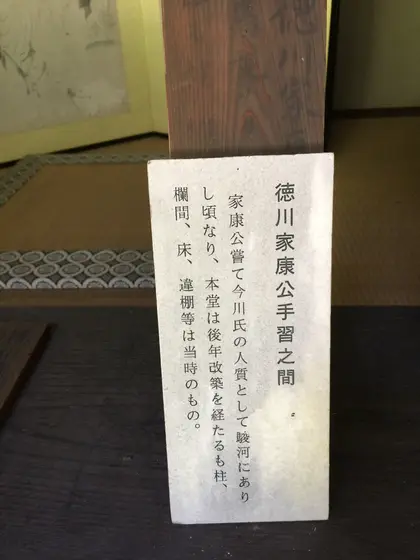 徳川家康公手習之間
家康公嘗て今川氏の人質として駿河にあり
し頃なり、本堂は後年改築を経たるも柱、
欄間、床、違棚等は当時のもの。
徳川家